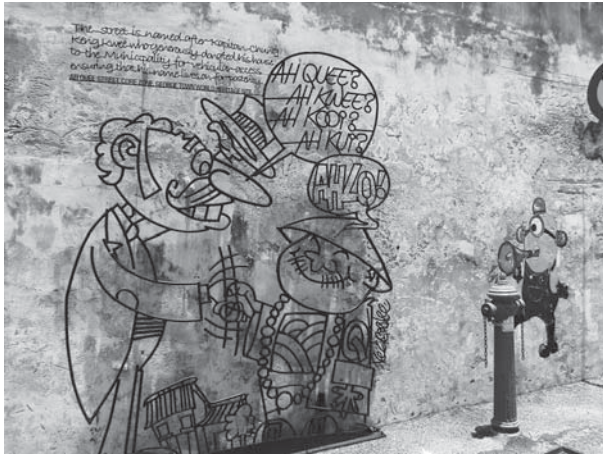 The street is named after Kapitan Chung
Keng Kwee who generously donated his house
to the Municipality for vehicular access
ensuring that his name lives on for posterity
AH QUEE STREET CORE ZONE GEORGE TOWN WORLD HERITAGE SITE
AH QUEE?
AH KWEE?
AH KOOI?
AH KUI?